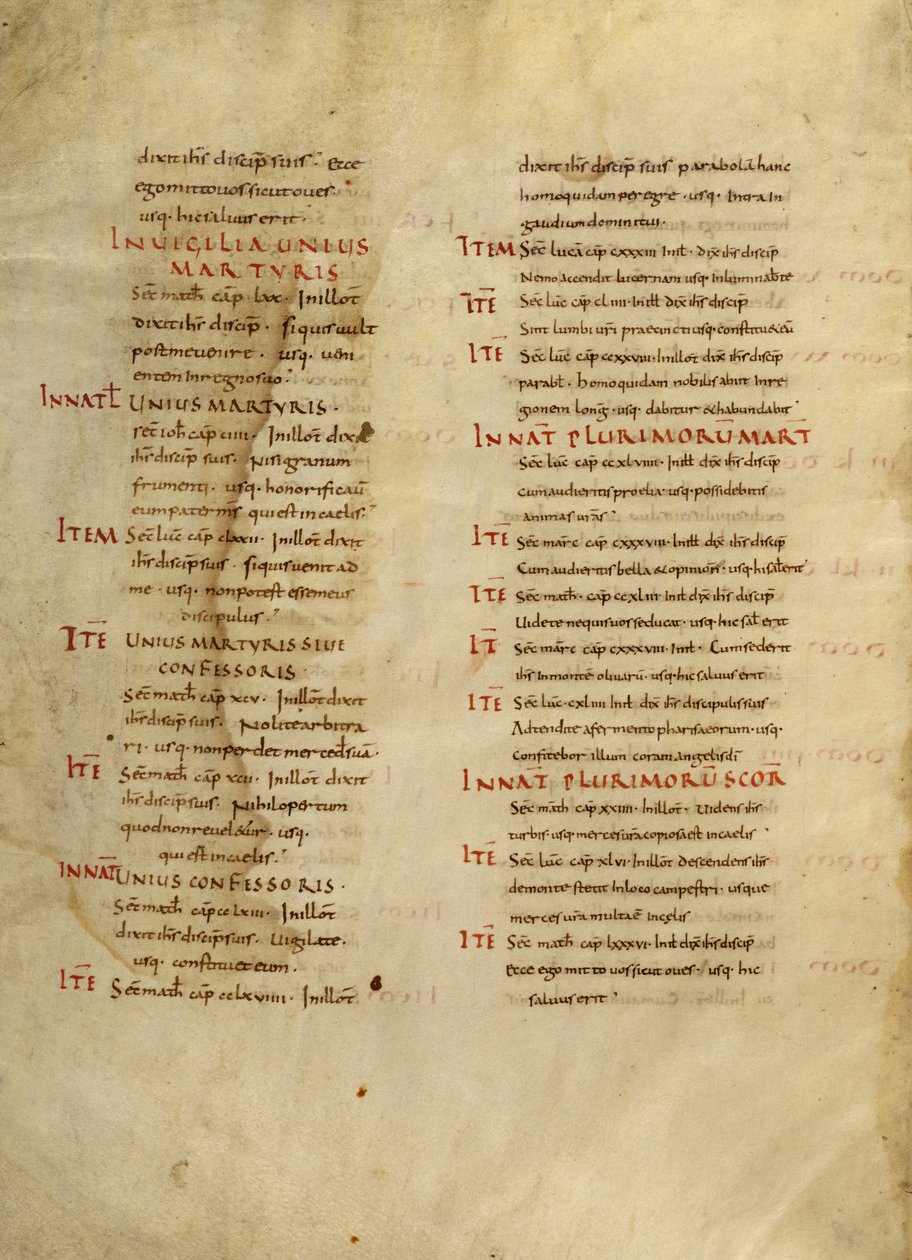 dixit ih̄s discip̄ suis. Ecce
ego mitto vos sicut oves.
usq· hic salvus erit.
IN VIGILIA UNIUS
MARTYRIS
Sec̄ math̄ cap̄ lxx· In illot̄
dixit ih̄s discip̄· Si quis vult
post me venire· usq· veni
entem in regno suo.
IN NATL̄ UNIUS MARTYRIS·
sec̄ ioh̄ cap̄ ciiii· In illot̄ dixit
ih̄s discip̄ suis· Nisi granum
frumenti· usq· honorificav̄
eum pater m̄s qui est in caelis.
ITEM Sec̄ luc̄ cap̄ clxxii· In illot̄ dixit
ih̄s discip̄ suis· Si quis venit ad
me· usq· non potest esse meus
discipulus.
ITĒ UNIUS MARTYRIS SIVE
CONFESSORIS
Sec̄ math̄ cap̄ xcv· In illot̄ dixit
ih̄s discip̄ suis· Nolite arbitra
ri· usq· non perdet merced̄ suā·
ITĒ Sec̄ math̄ cap̄ xcii· In illot̄ dixit
ih̄s discip̄ suis· Nihil opertum
quod non reveletur· usq·
qui est in caelis.
IN NAT̄ UNIUS CONFESSORIS·
Sec̄ math̄ cap̄ cclxiii· In illot̄
dixit ih̄s discip̄ suis· Vigilate·
usq· constituet eum·
ITĒ Sec̄ math̄ cap̄ cclxviiii· In illot̄
dixit ih̄s discip̄ suis parabolā hanc
homo quidam peregre· usq· Intra in
gaudium domini tui·
ITEM Sec̄ lucā cap̄ cxxxiii In ill̄· dix̄ ih̄s discip̄
Nemo accendit lucernam usq· inluminab̄ te
ITĒ Sec̄ luc̄ cap̄ cliiii· In ill̄ dix̄ ih̄s discip̄
Sint lumbi vr̄i praecincti usq· constituet eū
ITĒ Sec̄ luc̄ cap̄ ccxxviii· In illot̄ dix̄ ih̄s discip̄
parabl̄· homo quidam nobilis abiit in re
gionem lonḡ· usq· dabitur & habundabit
IN NAT̄ PLURIMORŪ MART̄
Sec̄ luc̄ cap̄ ccxlviiii· In ill̄ dix̄ ih̄s discip̄
cum audieritis proelia· usq· possidebitis
animas vr̄as
ITĒ Sec̄ marc̄ cap̄ cxxxviii· In ill̄ dix̄ ih̄s discip̄
Cum audieritis bella & opinion̄· usq· hi sal̄ erit
ITĒ Sec̄ math̄· cap̄ ccxliii· In ill̄ dix̄ ih̄s discip̄
Videte ne quis vos seducat· usq· hic sal̄ erit
IT̄ Sec̄ mar̄c cap̄ cxxxviii· In ill̄· Cum sederit
ih̄s in monte olivarū· usq· hic salvus erit
ITĒ Sec̄ luc̄· cxliiii In ill̄ dix̄ ih̄s discipulis suis
Adtendite a fermento pharisaeorum· usq·
Confitebor illum coram angelis dī
IN NAT PLURIMORŪ SCOR̄
Sec̄ math̄ cap̄ xxiiii· In illot̄· Videns ih̄s
turbis· usq· merces vr̄a copiosa est in caelis
ITĒ Sec̄ luc̄ cap̄ xlvi· In illot̄ descendens ih̄s
de monte stetit in loco campestri· usque
merces vr̄a multa ē in celis
ITĒ Sec̄ math̄ cap̄ lxxxvi· In ill̄ dix̄ ih̄s discip̄
Ecce ego mitto vos sicut oves· usq· hic
salvus erit